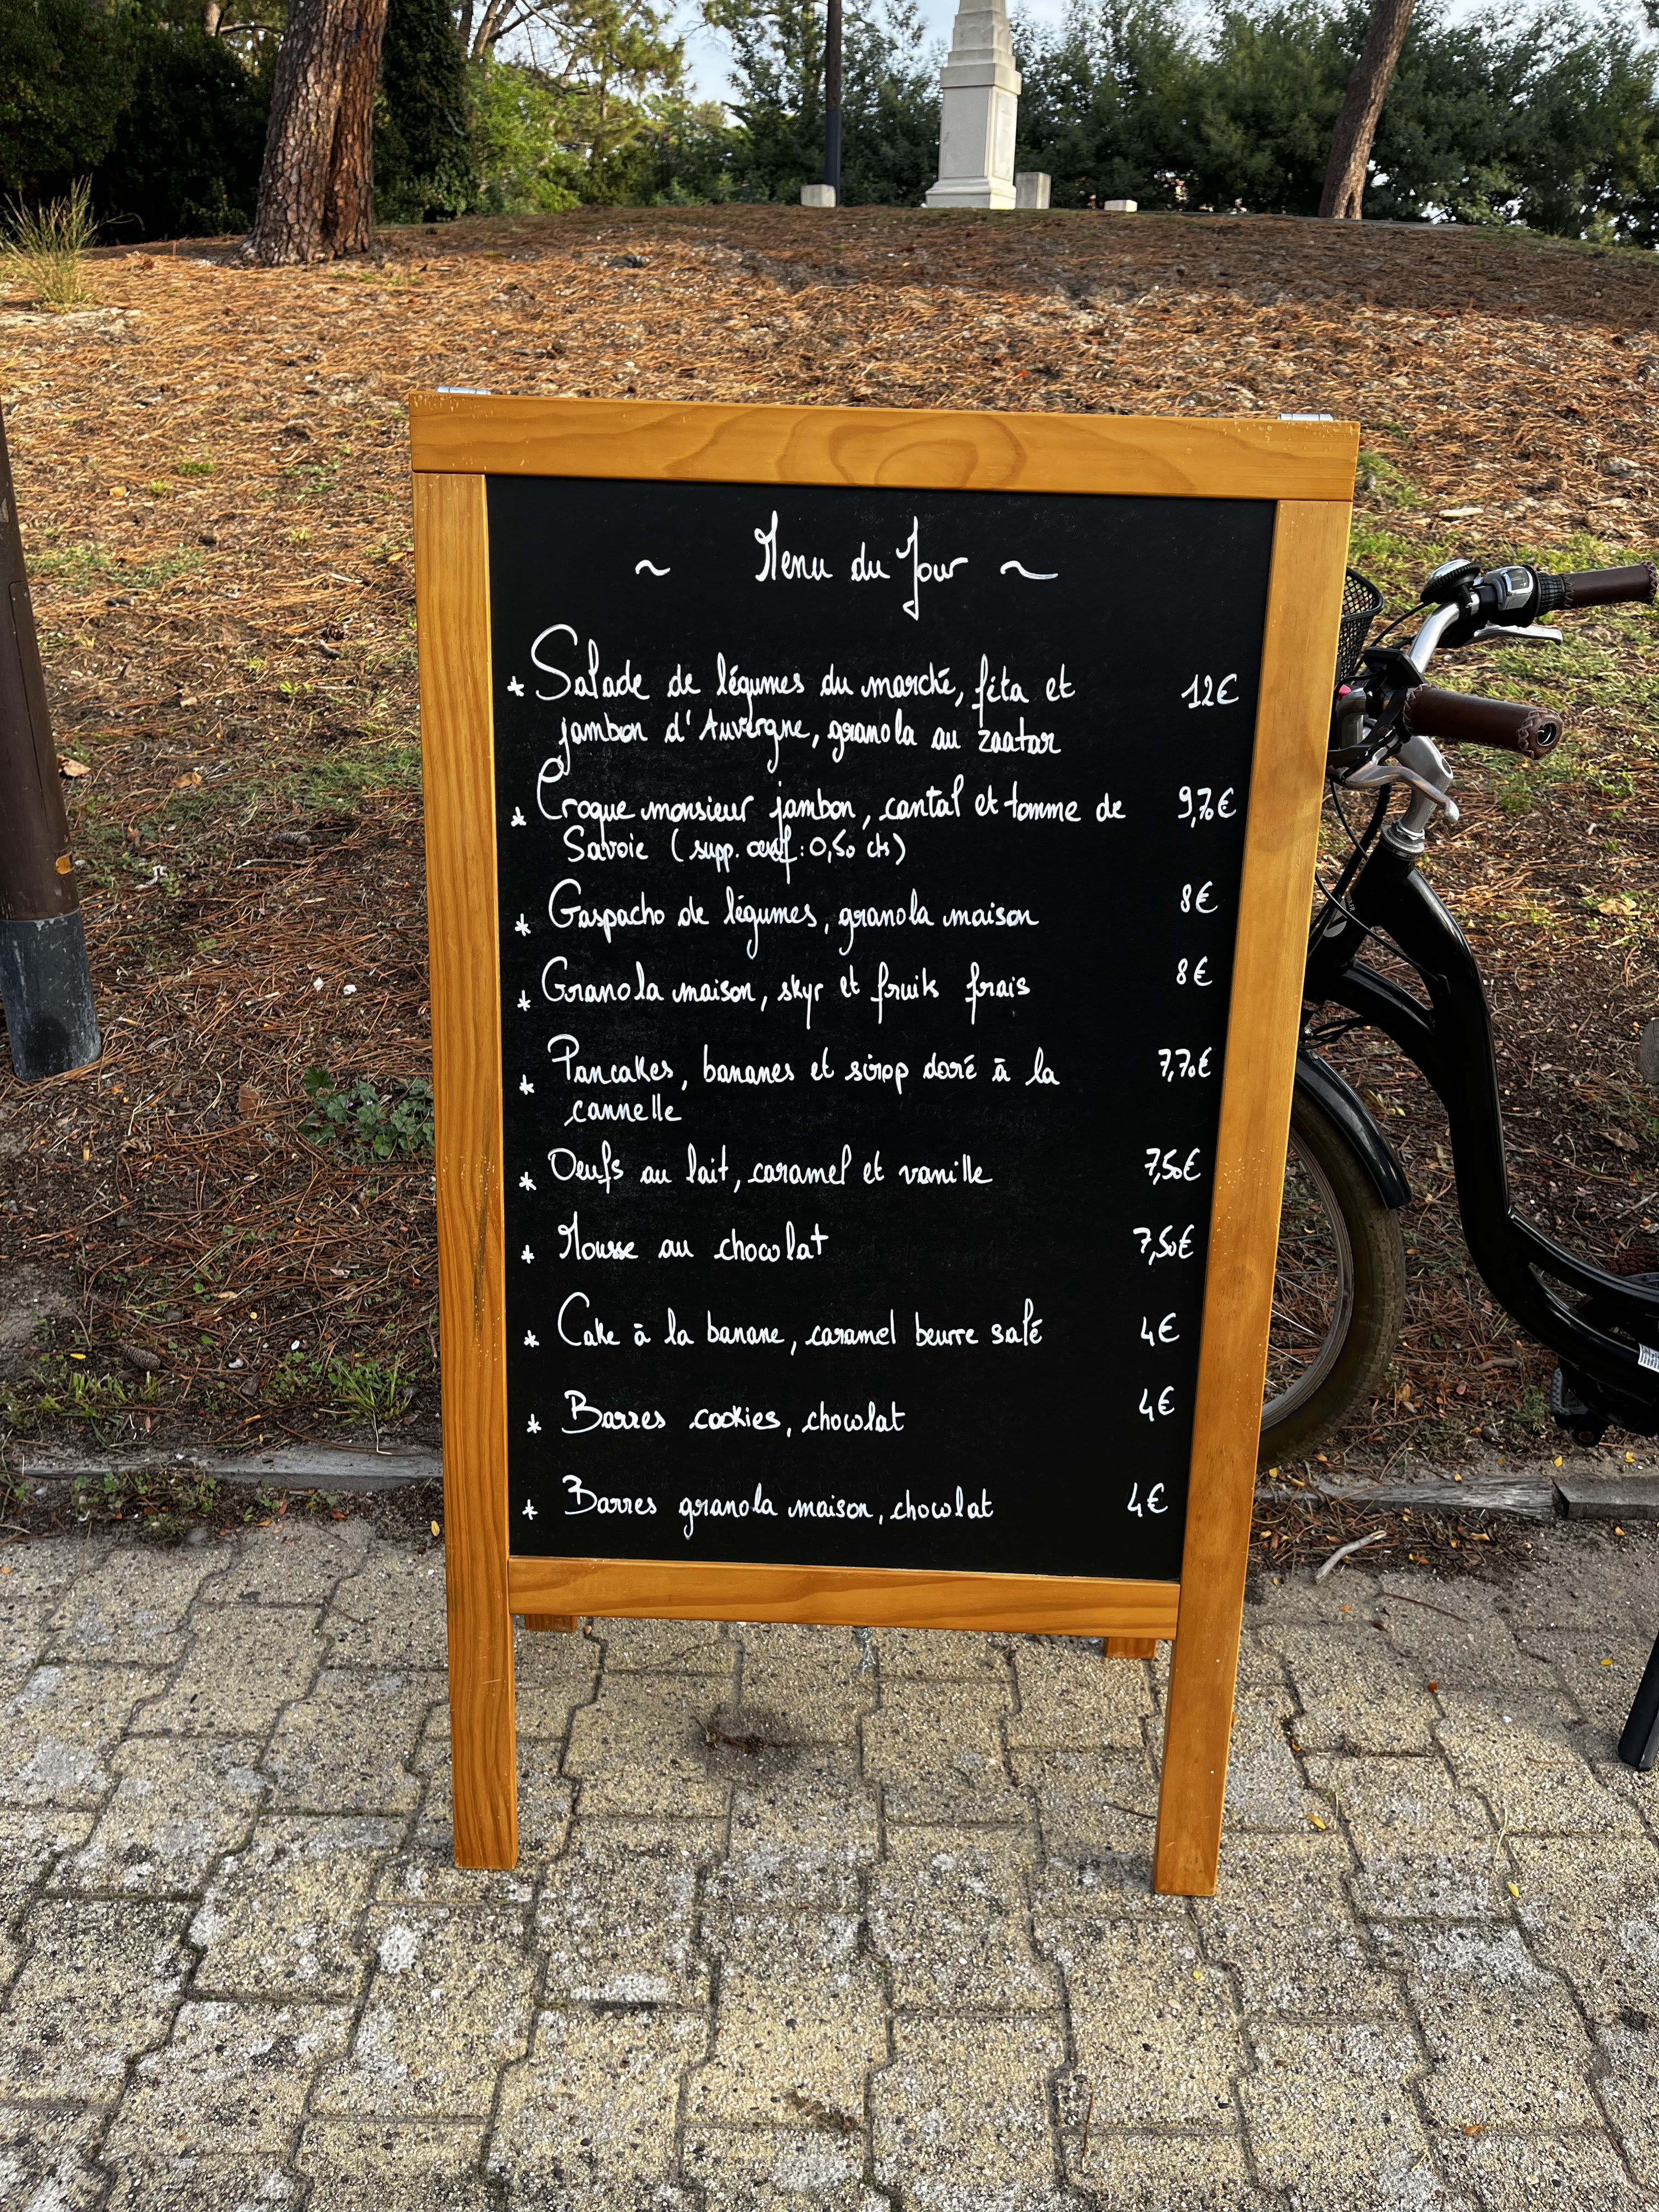 ~ Menu du Jour ~
* Salade de légumes du marché, féta et 12€
jambon d'Auvergne, granola au zaatar
* Croque monsieur jambon, cantal et tomme de 9,70€
Savoie (supp. œuf : 0,50 cts)
* Gaspacho de légumes, granola maison 8€
* Granola maison, skyr et fruits frais 8€
* Pancakes, bananes et sirop doré à la 7,70€
cannelle
* Oeufs au lait, caramel et vanille 7,50€
* Mousse au chocolat 7,50€
* Cake à la banane, caramel beurre salé 4€
* Barres cookies, chocolat 4€
* Barres granola maison, chocolat 4€